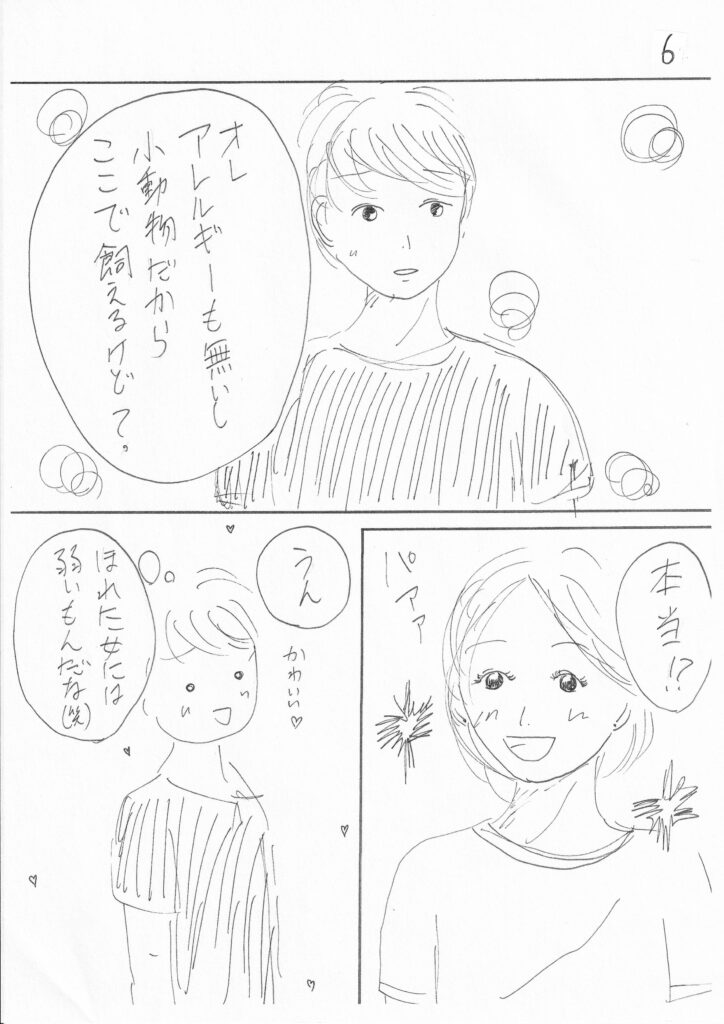 6
オレ
アレルギーも無いし
小動物だから
ここで飼えるけど？。
本当!?
パァァァ
うん
かわいい♡
ほれた女には
弱いもんだな(笑)